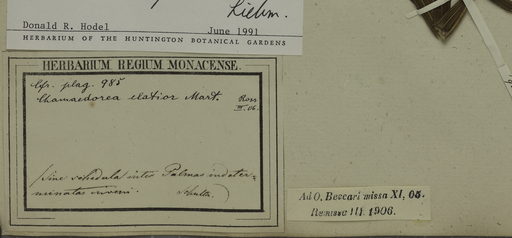 Liebm.
Donald R. Hodel June 1991
HERBARIUM OF THE HUNTINGTON BOTANICAL GARDENS
HERBARIUM REGIUM MONACENSE.
Cfr. plag. 985
Chamaedorea elatior Mart. Ross
III. 06.
(sine schedula inter Palmas indeter-
minatas inveni. Schultz.)
Ad O. Beccari missa XI, 05.
Remissa III. 1906.